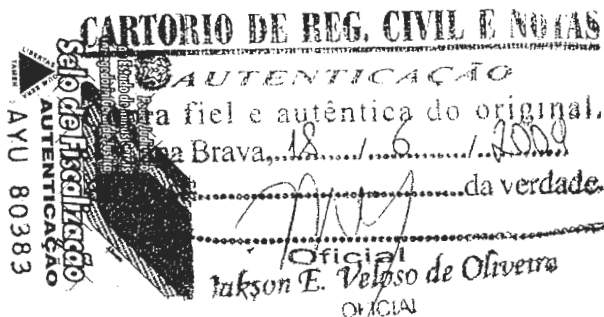 CARTORIO DE REG. CIVIL E NOTAS
AUTENTICAÇÃO
fiel e autêntica do original.
Brava, 18 / 6 / 2009
da verdade.
Oficial
Jakson E. Veloso de Oliveira
OFICIAL
Selo de Fiscalização
AUTENTICAÇÃO
AYU 80383